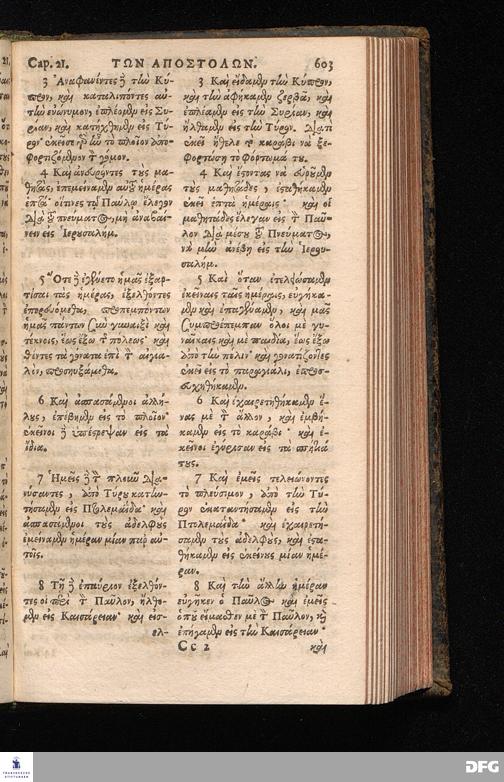 Cap. 21. ΤΩΝ ΑΠΟΣΤΟΛΩΝ. 603
3 Ἀναφανέντες δὲ τὴν Κύ-
προν, καὶ καταλιπόντες αὐ-
τὴν εὐώνυμον, ἐπλέομεν εἰς Συ-
ρίαν, καὶ κατήχθημεν εἰς Τύ-
ρον· ἐκεῖσε γὰρ ἦν τὸ πλοῖον ἀπο-
φορτιζόμενον τὸν γόμον.
4 Καὶ ἀνευρόντες τοὺς μα-
θητὰς, ἐπεμείναμεν αὐτοῦ ἡμέρας
ἑπτά· οἵτινες τῷ Παύλῳ ἔλεγον
διὰ τοῦ πνεύματος, μὴ ἀναβαί-
νειν εἰς Ἱερουσαλήμ.
5 Ὅτε δὲ ἐγένετο ἡμᾶς ἐξαρ-
τίσαι τὰς ἡμέρας, ἐξελθόντες
ἐπορευόμεθα, προπεμπόντων
ἡμᾶς πάντων σὺν γυναιξὶ καὶ
τέκνοις, ἕως ἔξω τῆς πόλεως· καὶ
θέντες τὰ γόνατα ἐπὶ τὸν αἰγια-
λὸν, προσηυξάμεθα.
6 Καὶ ἀσπασάμενοι ἀλλή-
λους, ἐπέβημεν εἰς τὸ πλοῖον·
ἐκεῖνοι δὲ ὑπέστρεψαν εἰς τὰ
ἴδια.
7 Ἡμεῖς δὲ τὸν πλοῦν δια-
νύσαντες, ἀπὸ Τύρου κατην-
τήσαμεν εἰς Πτολεμαΐδα· καὶ
ἀσπασάμενοι τοὺς ἀδελφοὺς
ἐμείναμεν ἡμέραν μίαν παρ' αὐ-
τοῖς.
8 Τῇ δὲ ἐπαύριον ἐξελθόν-
τες οἱ περὶ τὸν Παῦλον, ἤλθο-
μεν εἰς Καισάρειαν· καὶ εἰσ-
ελ-
3 Καὶ εἴδαμεν τὴν Κύπρον,
καὶ τὴν ἀφήκαμεν ζερβὰ, καὶ
ἐπλέαμεν εἰς τὴν Συρίαν, καὶ
ἤλθαμεν εἰς τὴν Τύρον. διατὶ
ἐκεῖ ἤθελε τὸ καράβι νὰ ξε-
φορτώσῃ τὸ φόρτωμά του.
4 Καὶ ἔσοντας νὰ εὑροῦμεν
τοὺς μαθητάδες, ἐσταθήκαμεν
ἐκεῖ ἑπτὰ ἡμέραις· καὶ οἱ
μαθητάδες ἔλεγαν εἰς τὸν Παῦ-
λον διὰ μέσου τοῦ Πνεύματος,
νὰ μὴν ἀνέβῃ εἰς τὴν Ἱερου-
σαλήμ.
5 Καὶ ὅταν ἐτελειώσαμεν
ἐκείναις ταῖς ἡμέραις, εὐγήκα-
μεν καὶ ἐπαγαίναμεν, καὶ μᾶς
ἐσυμπροέπεμπαν ὅλοι μὲ γυ-
ναῖκαις καὶ μὲ παιδία, ἕως ἔξω
ἀπὸ τὴν πόλιν· καὶ γονατίζοντες
ἐκεῖ εἰς τὸ παραγιάλι, ἐπροσ-
ευχήθηκαμεν.
6 Καὶ ἐχαιρετηθήκαμεν ἕ-
νας μὲ τὸν ἄλλον, καὶ ἐμβή-
καμεν εἰς τὸ καράβι· καὶ ἐ-
κεῖνοι ἐγύρισαν εἰς τὰ σπήτιά
τους.
7 Καὶ ἐμεῖς τελειώνοντες
τὸ πλεύσιμον, ἀπὸ τὴν Τύ-
ρον ἐκαταντήσαμεν εἰς τὴν
Πτολεμαΐδα· καὶ ἐχαιρετή-
σαμεν τοὺς ἀδελφοὺς, καὶ ἐστα-
θήκαμεν εἰς ἐκείνους μίαν ἡμέ-
ραν.
8 Καὶ τὴν ἄλλην ἡμέραν
εὐγῆκεν ὁ Παῦλος καὶ ἐμεῖς
ὁποῦ εἴμασθεν μὲ τὸν Παῦλον, καὶ
ἐπήγαμεν εἰς τὴν Καισάρειαν·
Cc 2 καὶ
FRANCKESCHE STIFTUNGEN
DFG